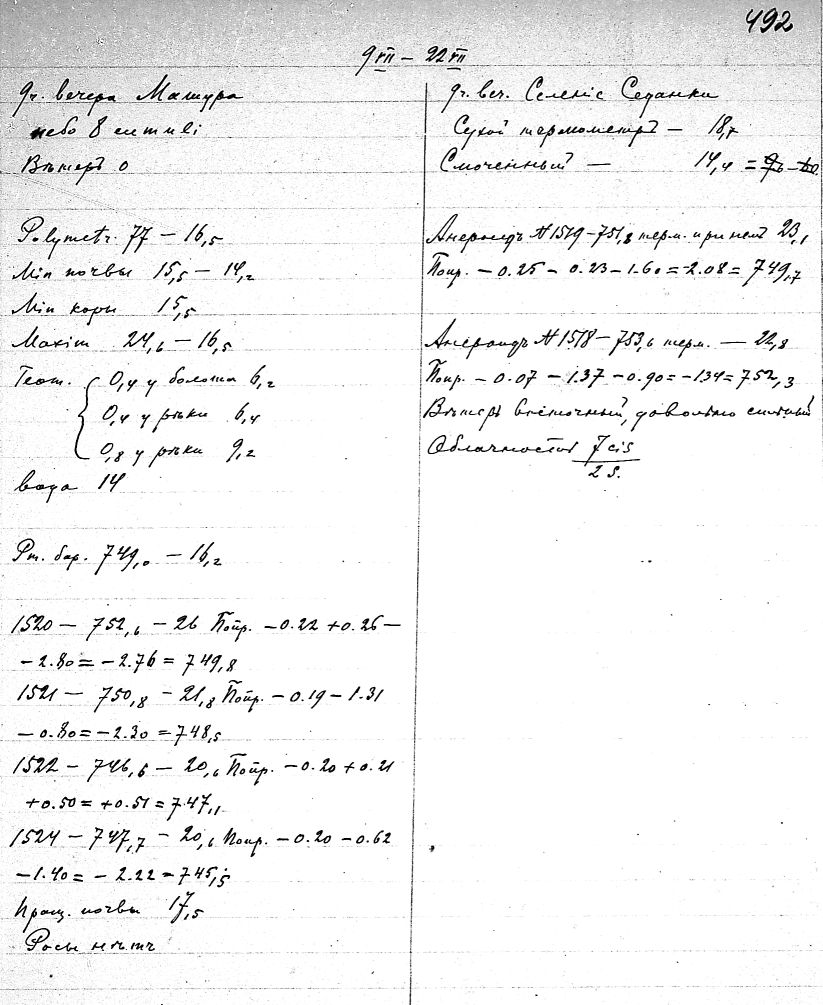 492
9 VII – 22 VII
9ч. вечера Машура
небо 8
Вѣтеръ 0
Polymetr. 77 – 16,5
Min почвы 15,5 – 14,2
Min коры 15,5
Maxim 24,6 – 16,5
Геот. 0,4 у болота 6,2
0,4 у рѣки 6,4
0,8 у рѣки 9,2
вода 14
Рт. бар. 749,0 – 16,2
1520 – 752,6 – 26 Попр. – 0.22 + 0.26 –
– 2.80 = – 2.76 = 749,8
1521 – 750,8 – 21,8 Попр. – 0.19 – 1.31
– 0.80 = – 2.30 = 748,5
1522 – 746,6 – 20,6 Попр. – 0.20 + 0.21
+ 0.50 = + 0.51 = 747,1
1524 – 747,7 – 20,6 Попр. – 0.20 – 0.62
– 1.40 = – 2.22 = 745,5
Пращ. почвы 17,5
Росы нѣтъ
9ч. веч. Селеніе Седанки
Сухой термометръ – 18,7
Смоченный – 14,4 =
Анероидъ № 1519 – 751,8 терм. при немъ 23,1
Попр. – 0.25 – 0.23 – 1.60 = – 2.08 = 749,7
Анероидъ № 1518 – 753,6 терм. – 22,8
Попр. – 0.07 – 1.37 – 0.90 = – 1.34 = 752,3
Вѣтеръ восточный, довольно сильный
Облачность 7 ciS
2 S.